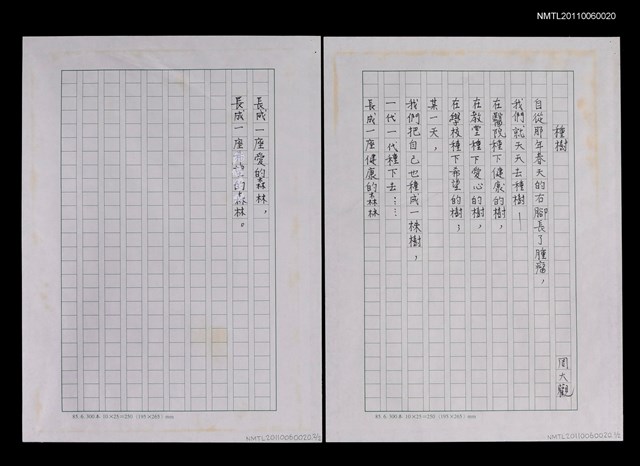 NMTL20110060020
種樹
周大觀
自從那年春天的右腳長了腫瘤，
我們就天天去種樹—
在醫院種下健康的樹，
在教堂種下愛心的樹，
在學校種下希望的樹；
某一天，
我們把自己也種成一棵樹，
一代一代種下去……
長成一座健康的森林
85.6. 300本 10×25=250 (195×265) mm
NMTL20110060020 1/2
長成一座愛的森林，
長成一座的森林。
85.6. 300本 10×25=250 (195×265) mm
NMTL20110060020 2/2